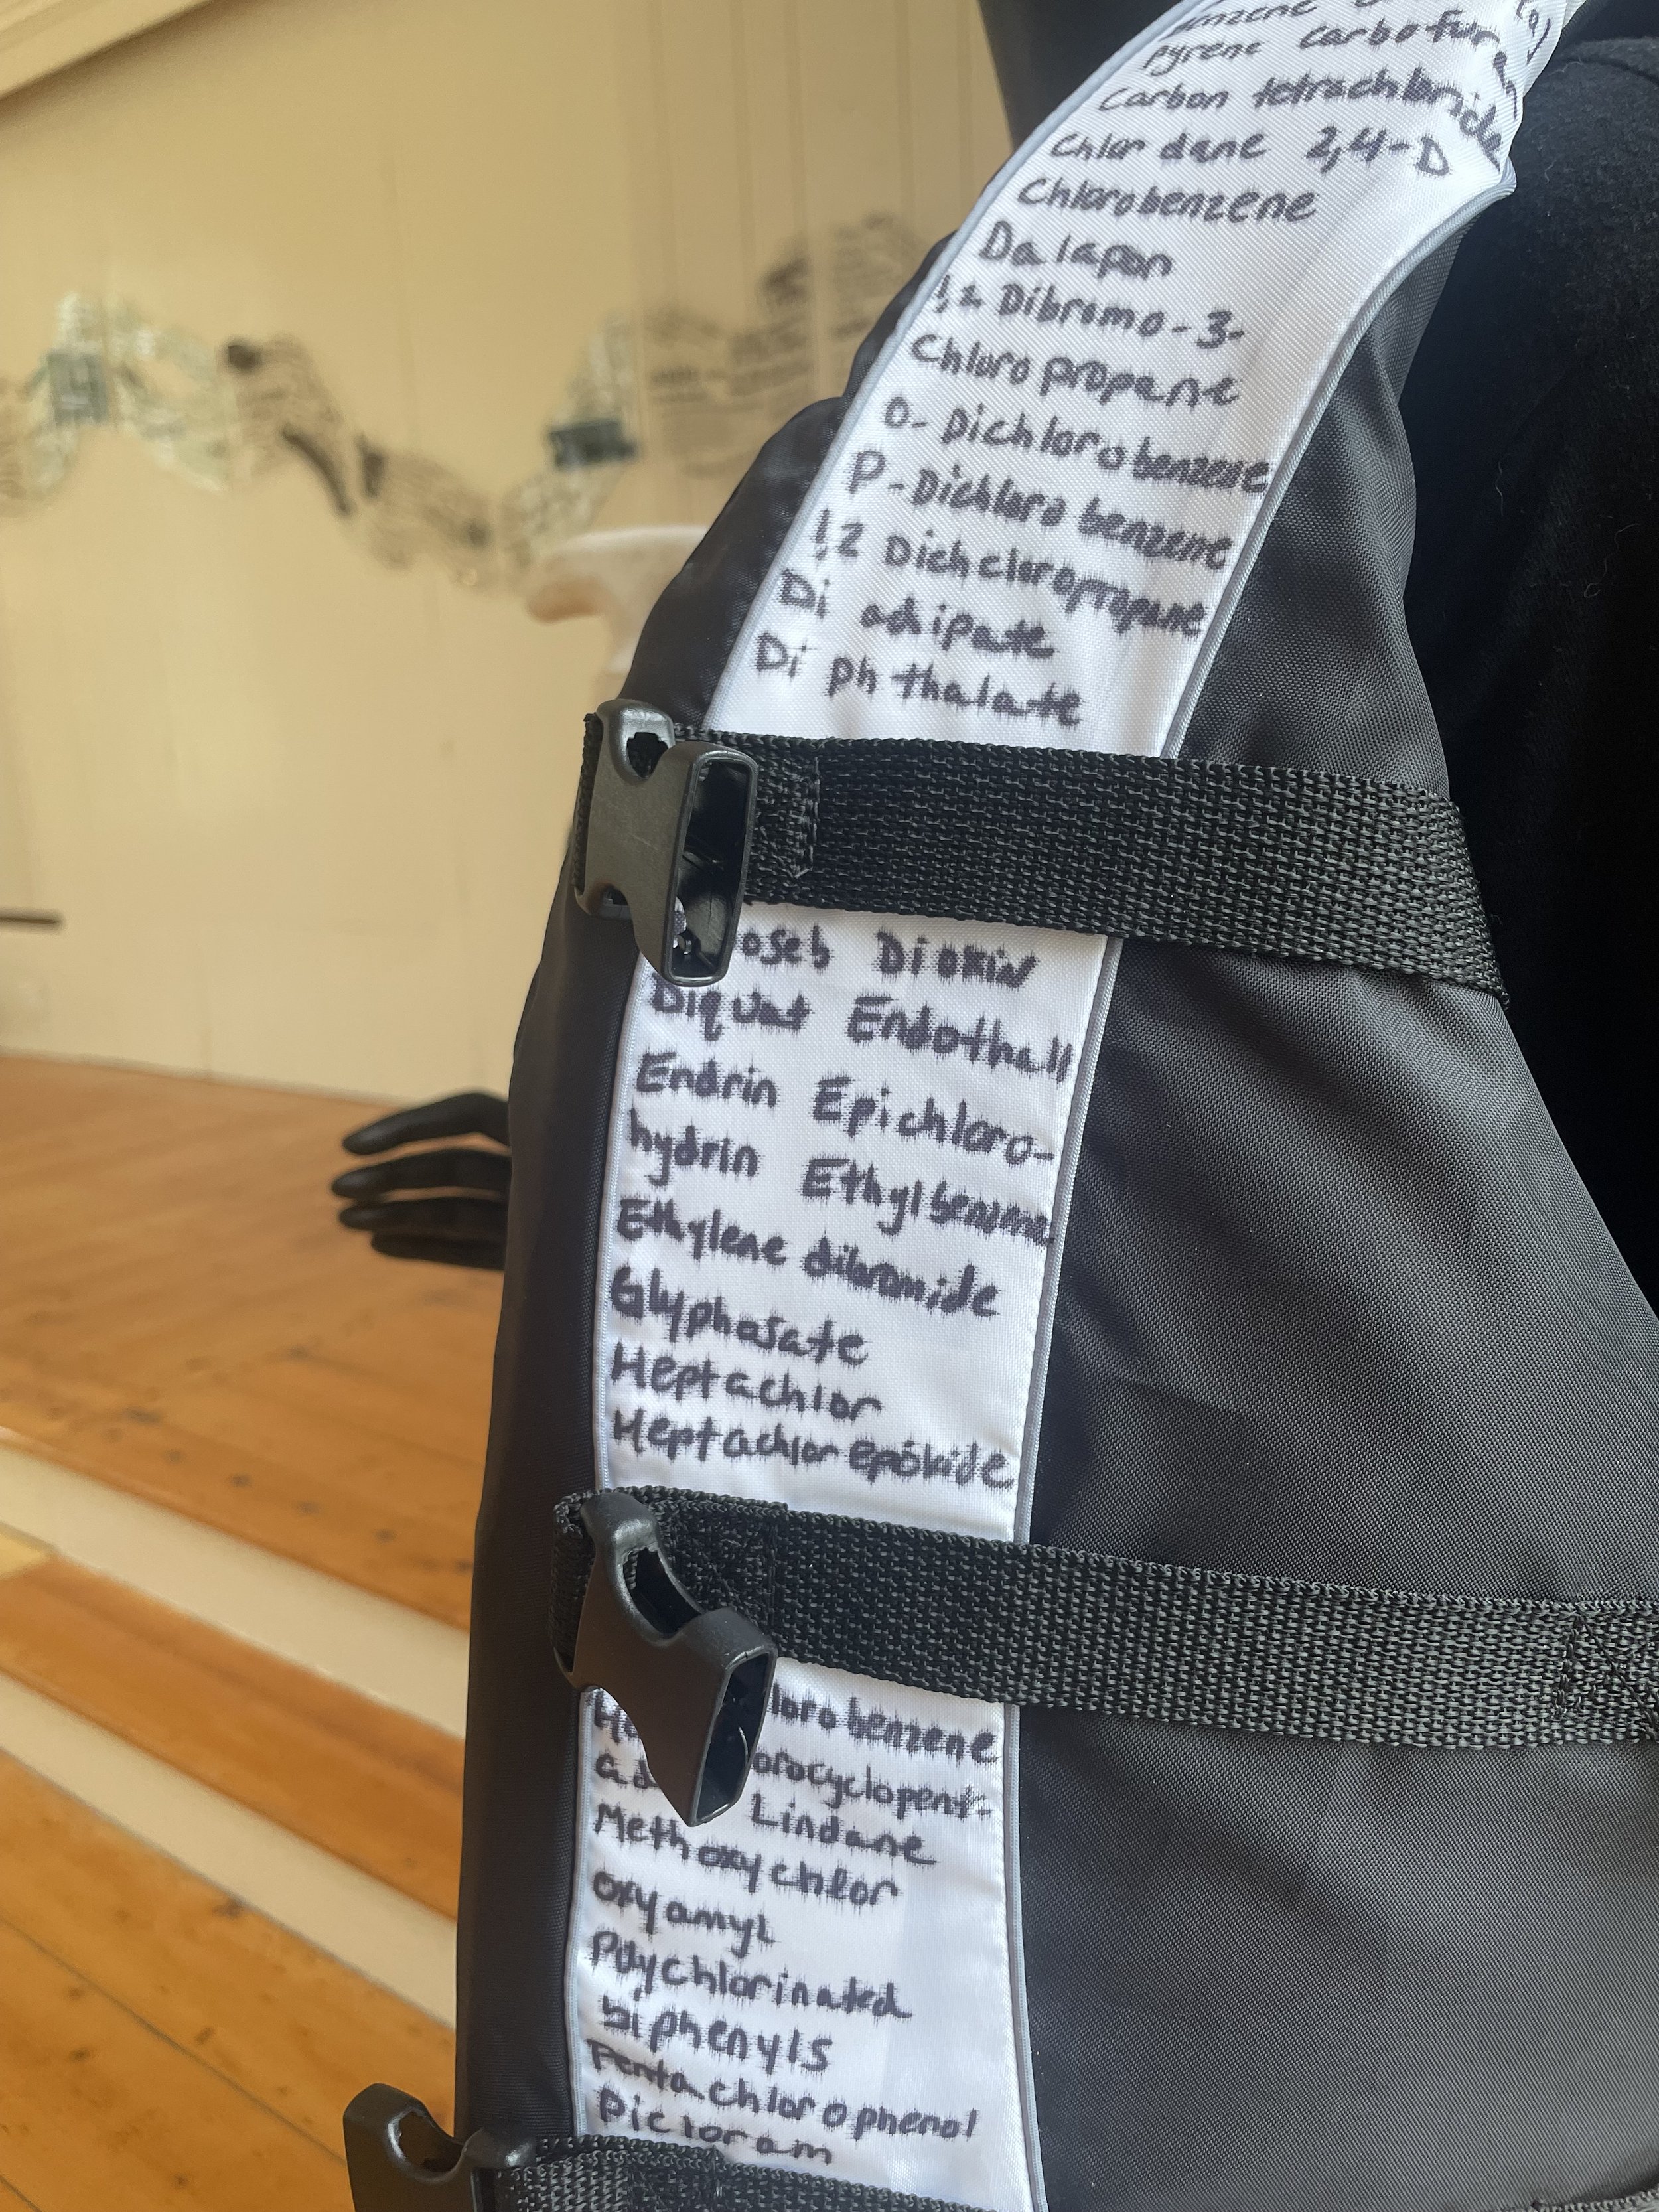 Pyrene Carbofuran
Carbon tetrachloride
Chlor dane 2,4-D
Chlorobenzene
Dalapon
1,2 Dibromo-3-
Chloropropane
O-Dichlorobenzene
P-Dichlorobenzene
1,2 Dichcloropropane
Di adipate
Di phthalate
oseb Dioxin
Diquat Endothall
Endrin Epichloro-
hydrin Ethylbenzene
Ethylene dibromide
Glyphosate
Heptachlor
Heptachlor epoxide
lorobenzene
orocyclopent-
ad Lindane
Methoxychlor
Oxyamyl
Polychlorinated
biphenyls
Pentachlorophenol
Picloram